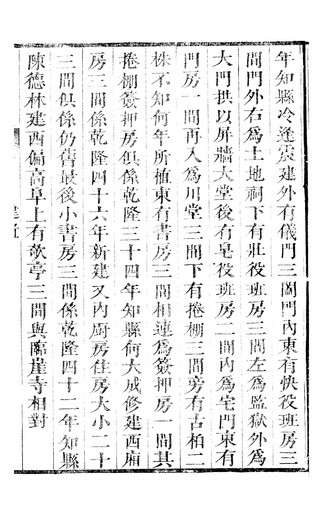 年知縣冷逢震建外有儀門三閒門內東有快役班房三
閒門外右為土地祠下有壯役班房三閒左為監獄外為
大門拱以屏牆大堂後有皂役班房二閒內為宅門東有
門房一閒再入為川堂三閒下有捲棚三閒旁有古柏二
株不知何年所植東有書房三閒相連為簽押房一閒其
捲棚簽押房俱係乾隆三十四年知縣何大成修建西廂
房三閒係乾隆四十六年新建又內厨房住房大小二十
三閒俱係仍舊最後小書房三閒係乾隆四十二年知縣
陳德林建西偏高阜上有欹亭三閒與臨崖寺相對